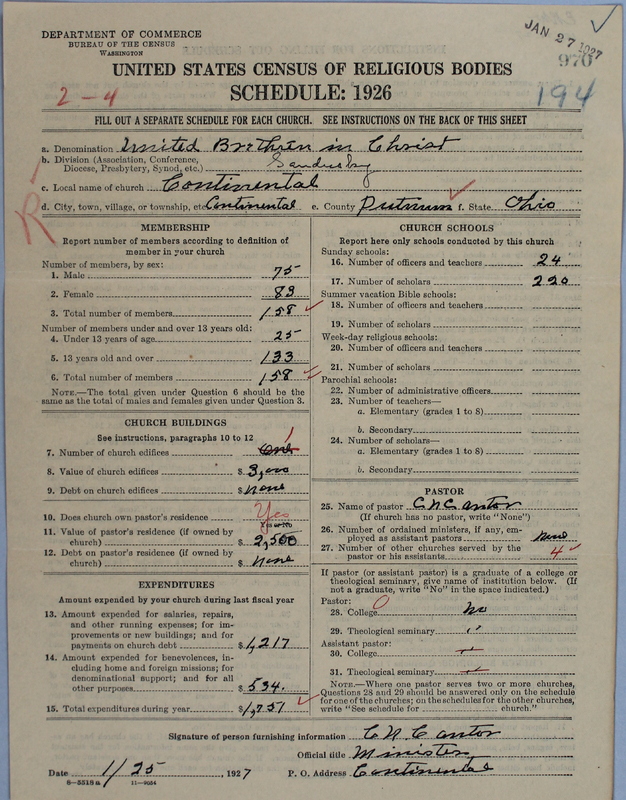 JAN 27 1927
DEPARTMENT OF COMMERCE
BUREAU OF THE CENSUS
WASHINGTON
970
UNITED STATES CENSUS OF RELIGIOUS BODIES
2-4
SCHEDULE: 1926
194
FILL OUT A SEPARATE SCHEDULE FOR EACH CHURCH. SEE INSTRUCTIONS ON THE BACK OF THIS SHEET
a. Denomination United Brethren in Christ
b. Division (Association, Conference,
Diocese, Presbytery, Synod, etc.) Sandusky
c. Local name of church Continental
d. City, town, village, or township, etc. Continental e. County Putnam f. State Ohio
R
MEMBERSHIP
Report number of members according to definition of
member in your church
Number of members, by sex:
1. Male 75
2. Female 83
3. Total number of members 158
Number of members under and over 13 years old:
4. Under 13 years of age 25
5. 13 years old and over 133
6. Total number of members 158
NOTE.—The total given under Question 6 should be
same as the total of males and females given under Question 3.
CHURCH BUILDINGS
See instructions, paragraphs 10 to 12
7. Number of church edifices One 1
8. Value of church edifices $3,000
9. Debt on church edifices $None
10. Does church own pastor's residence Yes
Yes or No
11. Value of pastor's residence (if owned by
church) $2,500
12. Debt on pastor's residence (if owned by
church) $None
EXPENDITURES
Amount expended by your church during last fiscal year
13. Amount expended for salaries, repairs,
and other running expenses; for im-
provements or new buildings; and for
payments on church debt $1,217
14. Amount expended for benevolences, in-
cluding home and foreign missions; for
denominational support; and for all
other purposes $534.
15. Total expenditures during year $1,751
CHURCH SCHOOLS
Report here only schools conducted by this church
Sunday schools:
16. Number of officers and teachers 24
17. Number of scholars 220
Summer vacation Bible schools:
18. Number of officers and teachers
19. Number of scholars
Week-day religious schools:
20. Number of officers and teachers
21. Number of scholars
Parochial schools:
22. Number of administrative officers
23. Number of teachers—
a. Elementary (grades 1 to 8)
b. Secondary
24. Number of scholars—
a. Elementary (grades 1 to 8)
b. Secondary
PASTOR
25. Name of pastor C N Cantor
(If church has no pastor, write "None")
26. Number of ordained ministers, if any, em-
ployed as assistant pastors None
27. Number of other churches served by the
pastor or his assistants 4
If pastor (or assistant pastor) is a graduate of a college or
theological seminary, give name of institution below. (If
not a graduate, write "No" in the space indicated.)
Pastor:
28. College 0 No
29. Theological seminary "
Assistant pastor:
30. College
31. Theological seminary
NOTE.—Where one pastor serves two or more churches,
Questions 28 and 29 should be answered only on the schedule
for one of the churches; on the schedules for the other churches,
write "See schedule for church."
Signature of person furnishing information C N Cantor
Official title Minister
Date 1/25, 1927 P. O. Address Continental
8-5518a 11-9054